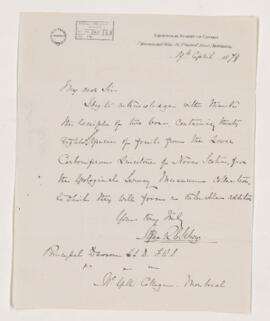 GEOLOGICAL SURVEY OF CANADA
1878
My dear Sir
I beg to acknowledge with thanks
the receipt of two boxes, containing thirty
eight species of fossils from the Lower
Carboniferous Limestone of Nova Scotia, for
the Geological Survey Museum collection,
to which they will form a valuable addition
Yours very truly
Principal Dawson LL.D. F.R.S.
McGill College. Montreal